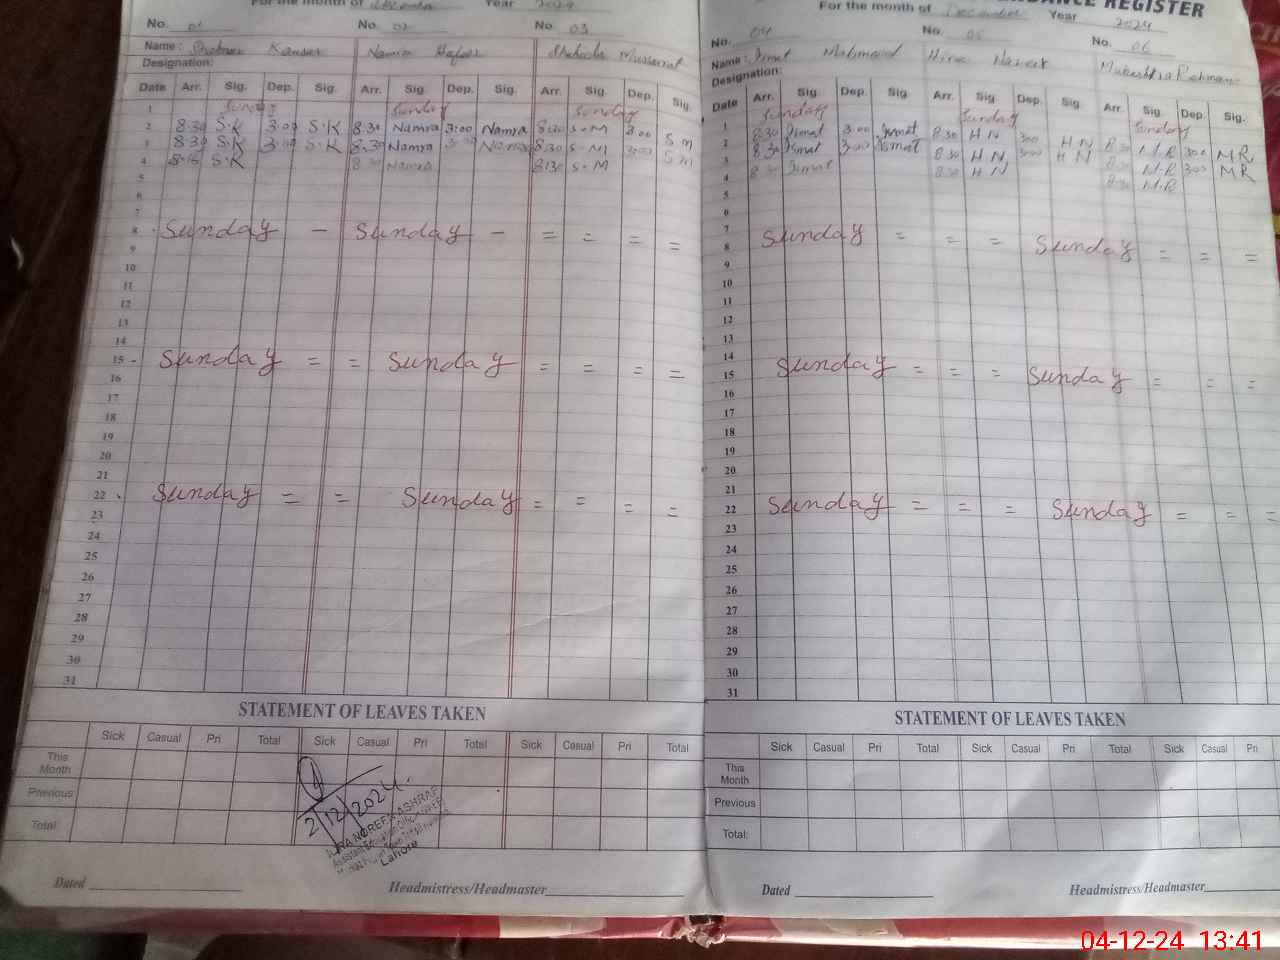 For the month of December Year 2024
No. 01 No. 02 No. 03
Name: Shabnam Kanwar Namra Hafeez Shakeela Mussarrat
Designation:
Date Arr. Sig. Dep. Sig. Arr. Sig. Dep. Sig. Arr. Sig. Dep. Sig.
1 Sunday Sunday Sunday
2 8:30 S.K 3:00 S.K 8.30 Namra 3:00 Namra 8:30 S.M 3:00 S M
3 8:30 S.K 3:00 S.K 8.30 Namra 3:00 Namra 8:30 S-M 3:00 S M
4 S.K 8:30 Namra 8:30 S-M
5
6
7
8 Sunday - Sunday - = = = =
9
10
11
12
13
14
15 - Sunday = = Sunday = = = =
16
17
18
19
20
21
22 Sunday = = Sunday = = = =
23
24
25
26
27
28
29
30
31
STATEMENT OF LEAVES TAKEN
Sick Casual Pri Total Sick Casual Pri Total Sick Casual Pri Total
This Month
Previous
Total
2/12/2024
NOREEN ASHRAF
Lahore
Dated Headmistress/Headmaster
REGISTER
For the month of December Year 2024
No. 04 No. 05 No. 06
Name: Ismat Mahmood Hina Rehman
Designation:
Date Arr. Sig. Dep. Sig. Arr. Sig. Dep. Sig. Arr. Sig. Dep. Sig.
1 Sunday Sunday Sunday
2 8:30 Ismat 3:00 Ismat 8:30 H N 300 H N 8:30 M.R 300 MR
3 8:30 Ismat 3:00 Ismat 8:30 H N 300 H N 8:30 M.R 300 MR
4 8:30 Ismat 8:30 H N 8:30 M.R
5
6
7
8 Sunday = = = Sunday = = =
9
10
11
12
13
14
15 Sunday = = = Sunday = = =
16
17
18
19
20
21
22 Sunday = = = Sunday = = =
23
24
25
26
27
28
29
30
31
STATEMENT OF LEAVES TAKEN
Sick Casual Pri Total Sick Casual Pri Total Sick Casual Pri
This Month
Previous
Total:
Dated Headmistress/Headmaster
04-12-24 13:41